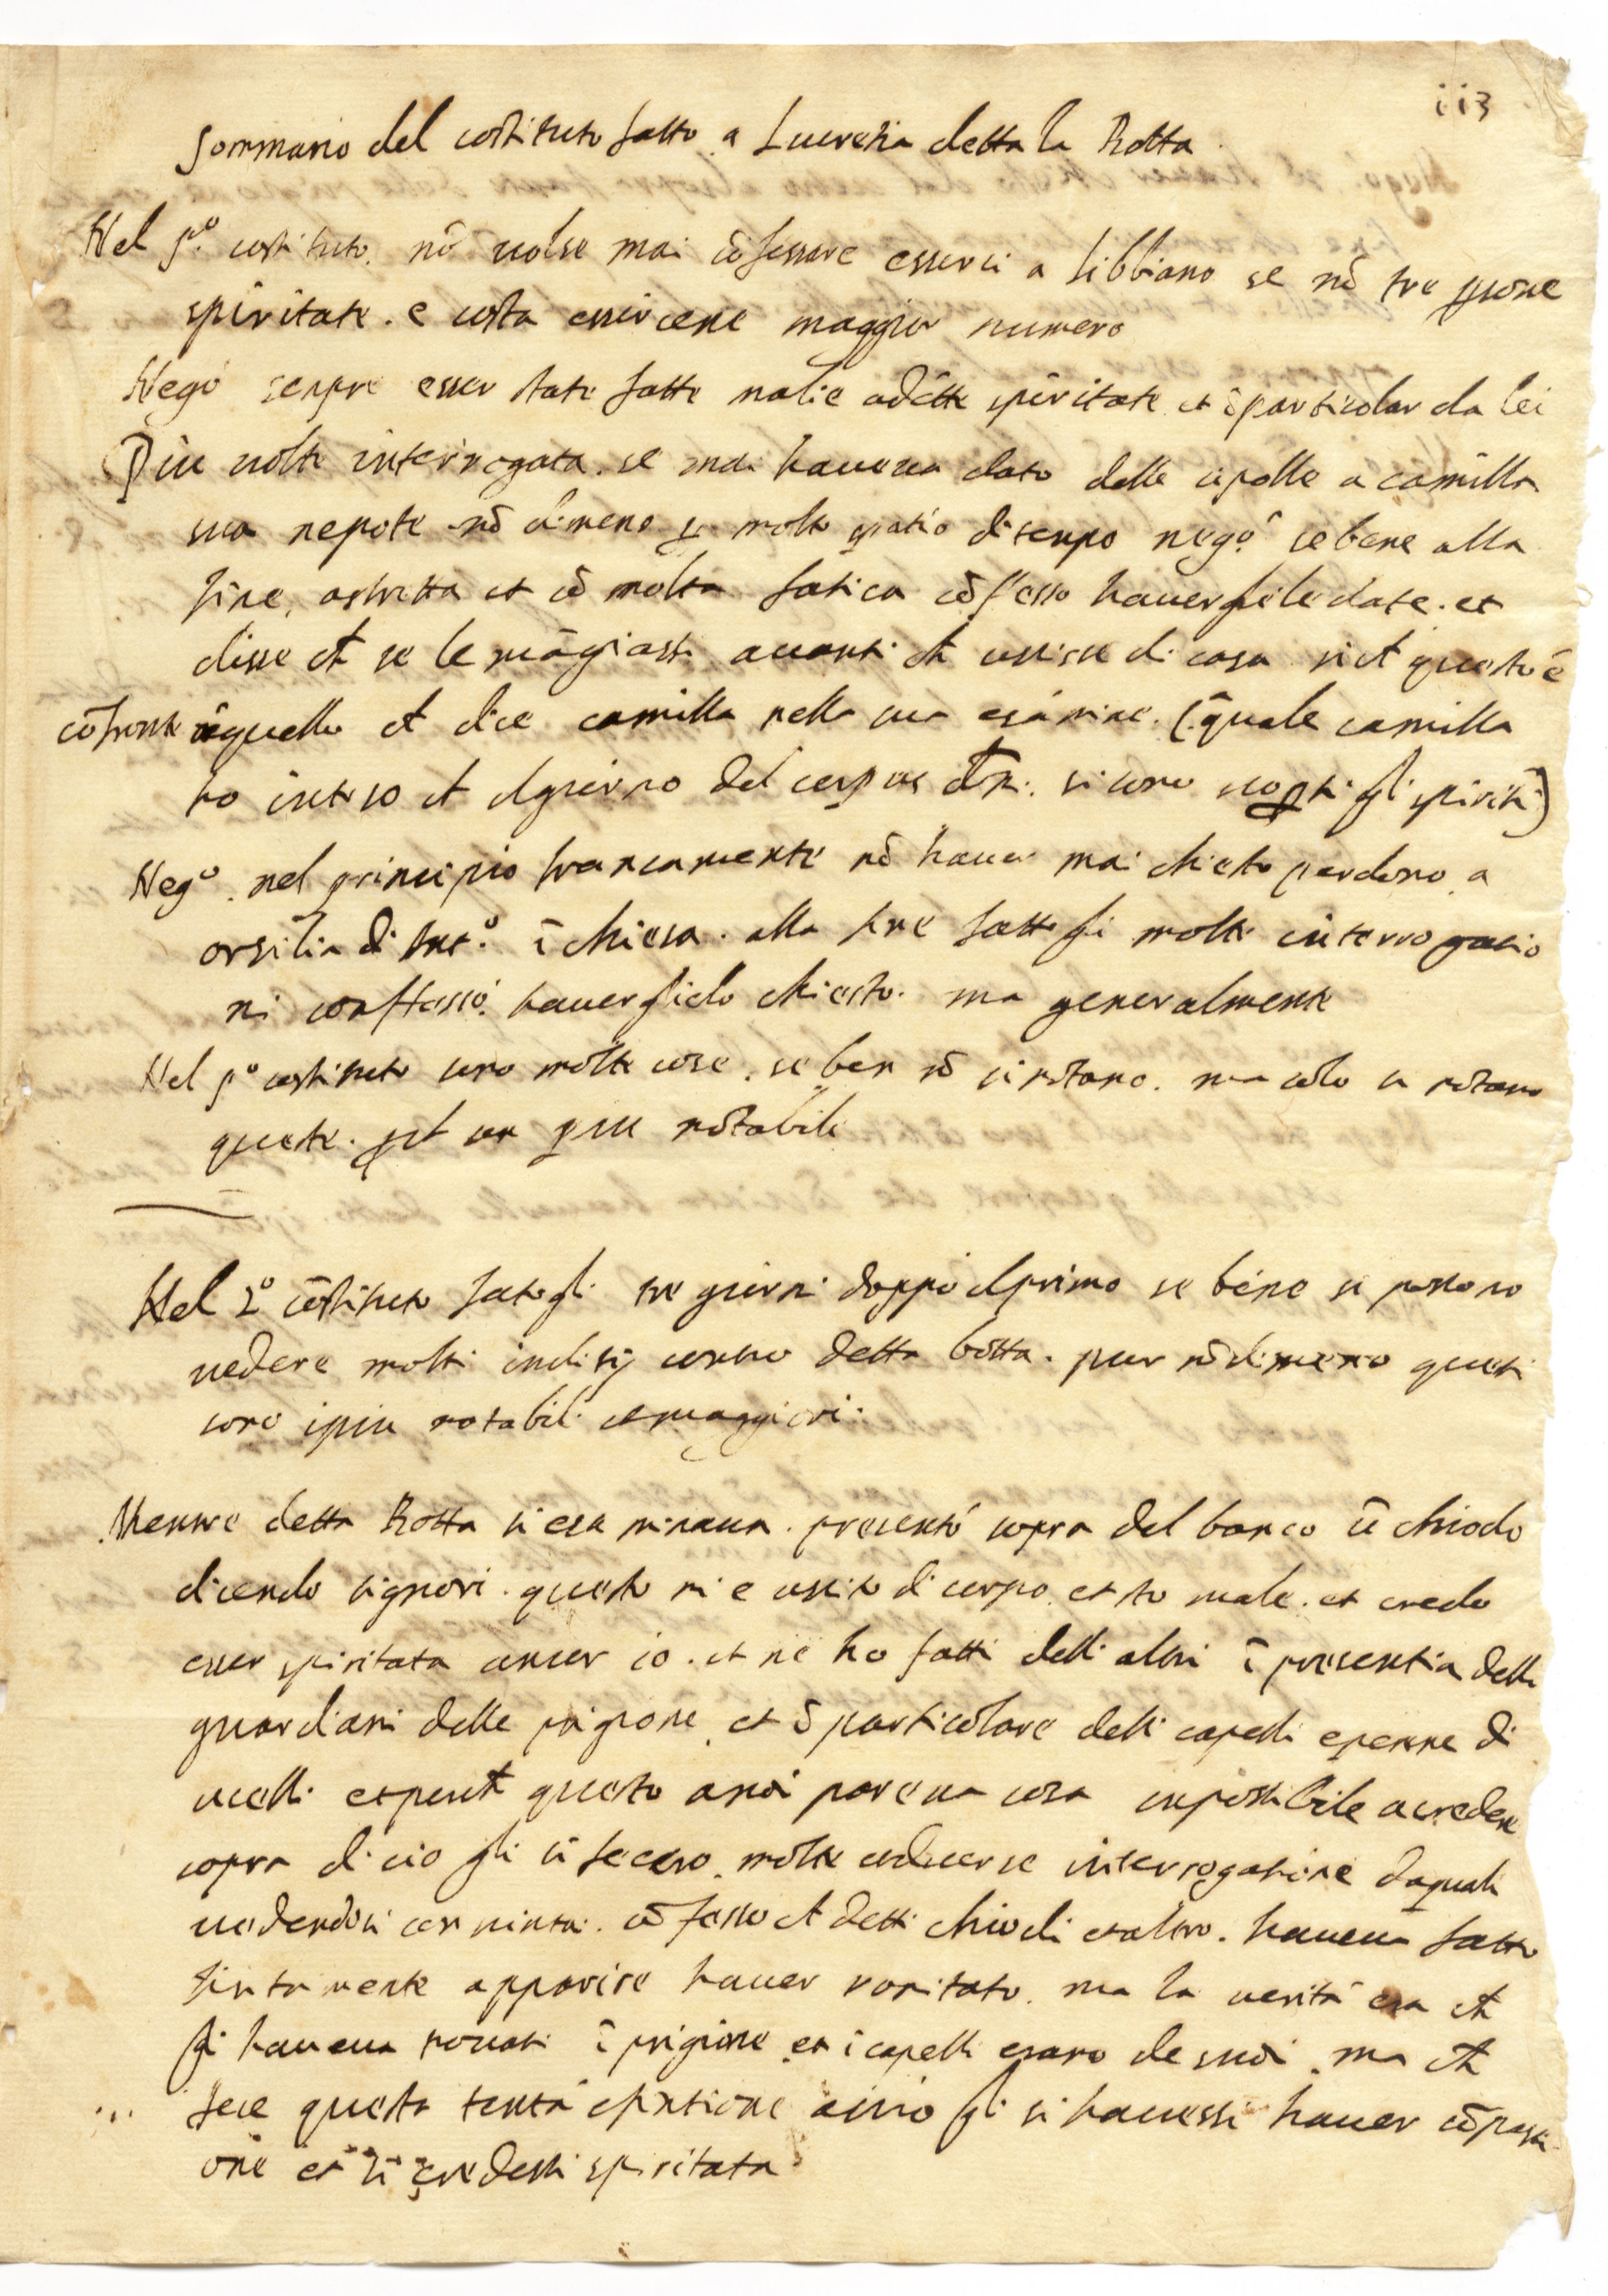 113
Sommario del costituto fatto a Lucretia detta la Rotta
Nel p.º costituto. nō uolse mai cōfessare esserci a libbiano se nō tre ꝑsone
spiritate. e costa essercene maggior numero
Negò senpre esser state fatte malie a dette spiritate et ī particolar da lei
Piu uolte interrogata. se mai haueua dato delle cipolle a camilla
sua nepote nō dimeno ꝑ molto spatio di tenpo negò se bene alla
fine, astretta et cō molta fatica cōfesso hauergliele date. et
disse ch̄ se le māgiassi auanti ch̄ uscisse di casa si ch̄ questo è
cōfronte a quello ch̄ dice camilla nella sua esamine. (īquale camilla
ho inteso ch̄ il giorno del corpus dn̄i. si sono scoꝑti gli spiriti)
Negò. nel principio francamente nō hauer mai chiesto perdono a
orsilia di sant.º ī chiesa. alla fine fatto gli molte interrogatio
ni conffessò hauerglielo chiesto. ma generalmente
Nel pº costituto sono molte cose. se ben nō si notano. ma solo si notano
queste. ꝑ ch̄ son piu notabile
Nel 2º cōstituto fatogli tre giorni doppo il primo se bene si possono
uedere molti inditij contro detta botta. pur nōdimeno questi
sono i piu notabili et maggiori.
Mentre detta Rotta si esaminaua. presentò sopra del banco ū chiodo
dicendo signori. questo mi e uscito di corpo. et sto male. et credo
esser spiritata ancor io. et ne ho fatti delli altri ī presentia delli
guardiani delle prigione. et ī particolare delli capelli e penne di
ucelli et perch̄ questo a noi pareua cosa inpossibile a credere
sopra di cio gli si fecero molte et diuerse interrogatione da quali
uedendosi conuinta. cō fesso ch̄ detti chiodi et altro. haueua fatto
fintamente apparire hauer vomitato. ma la uerità era ch̄
gli haueua trouati ī prigione et i capelli erano de suoi. ma ch̄
fece questa finta īuentione a ciò gli si hauessi hauer cōpassi
one et si credessi spiritata